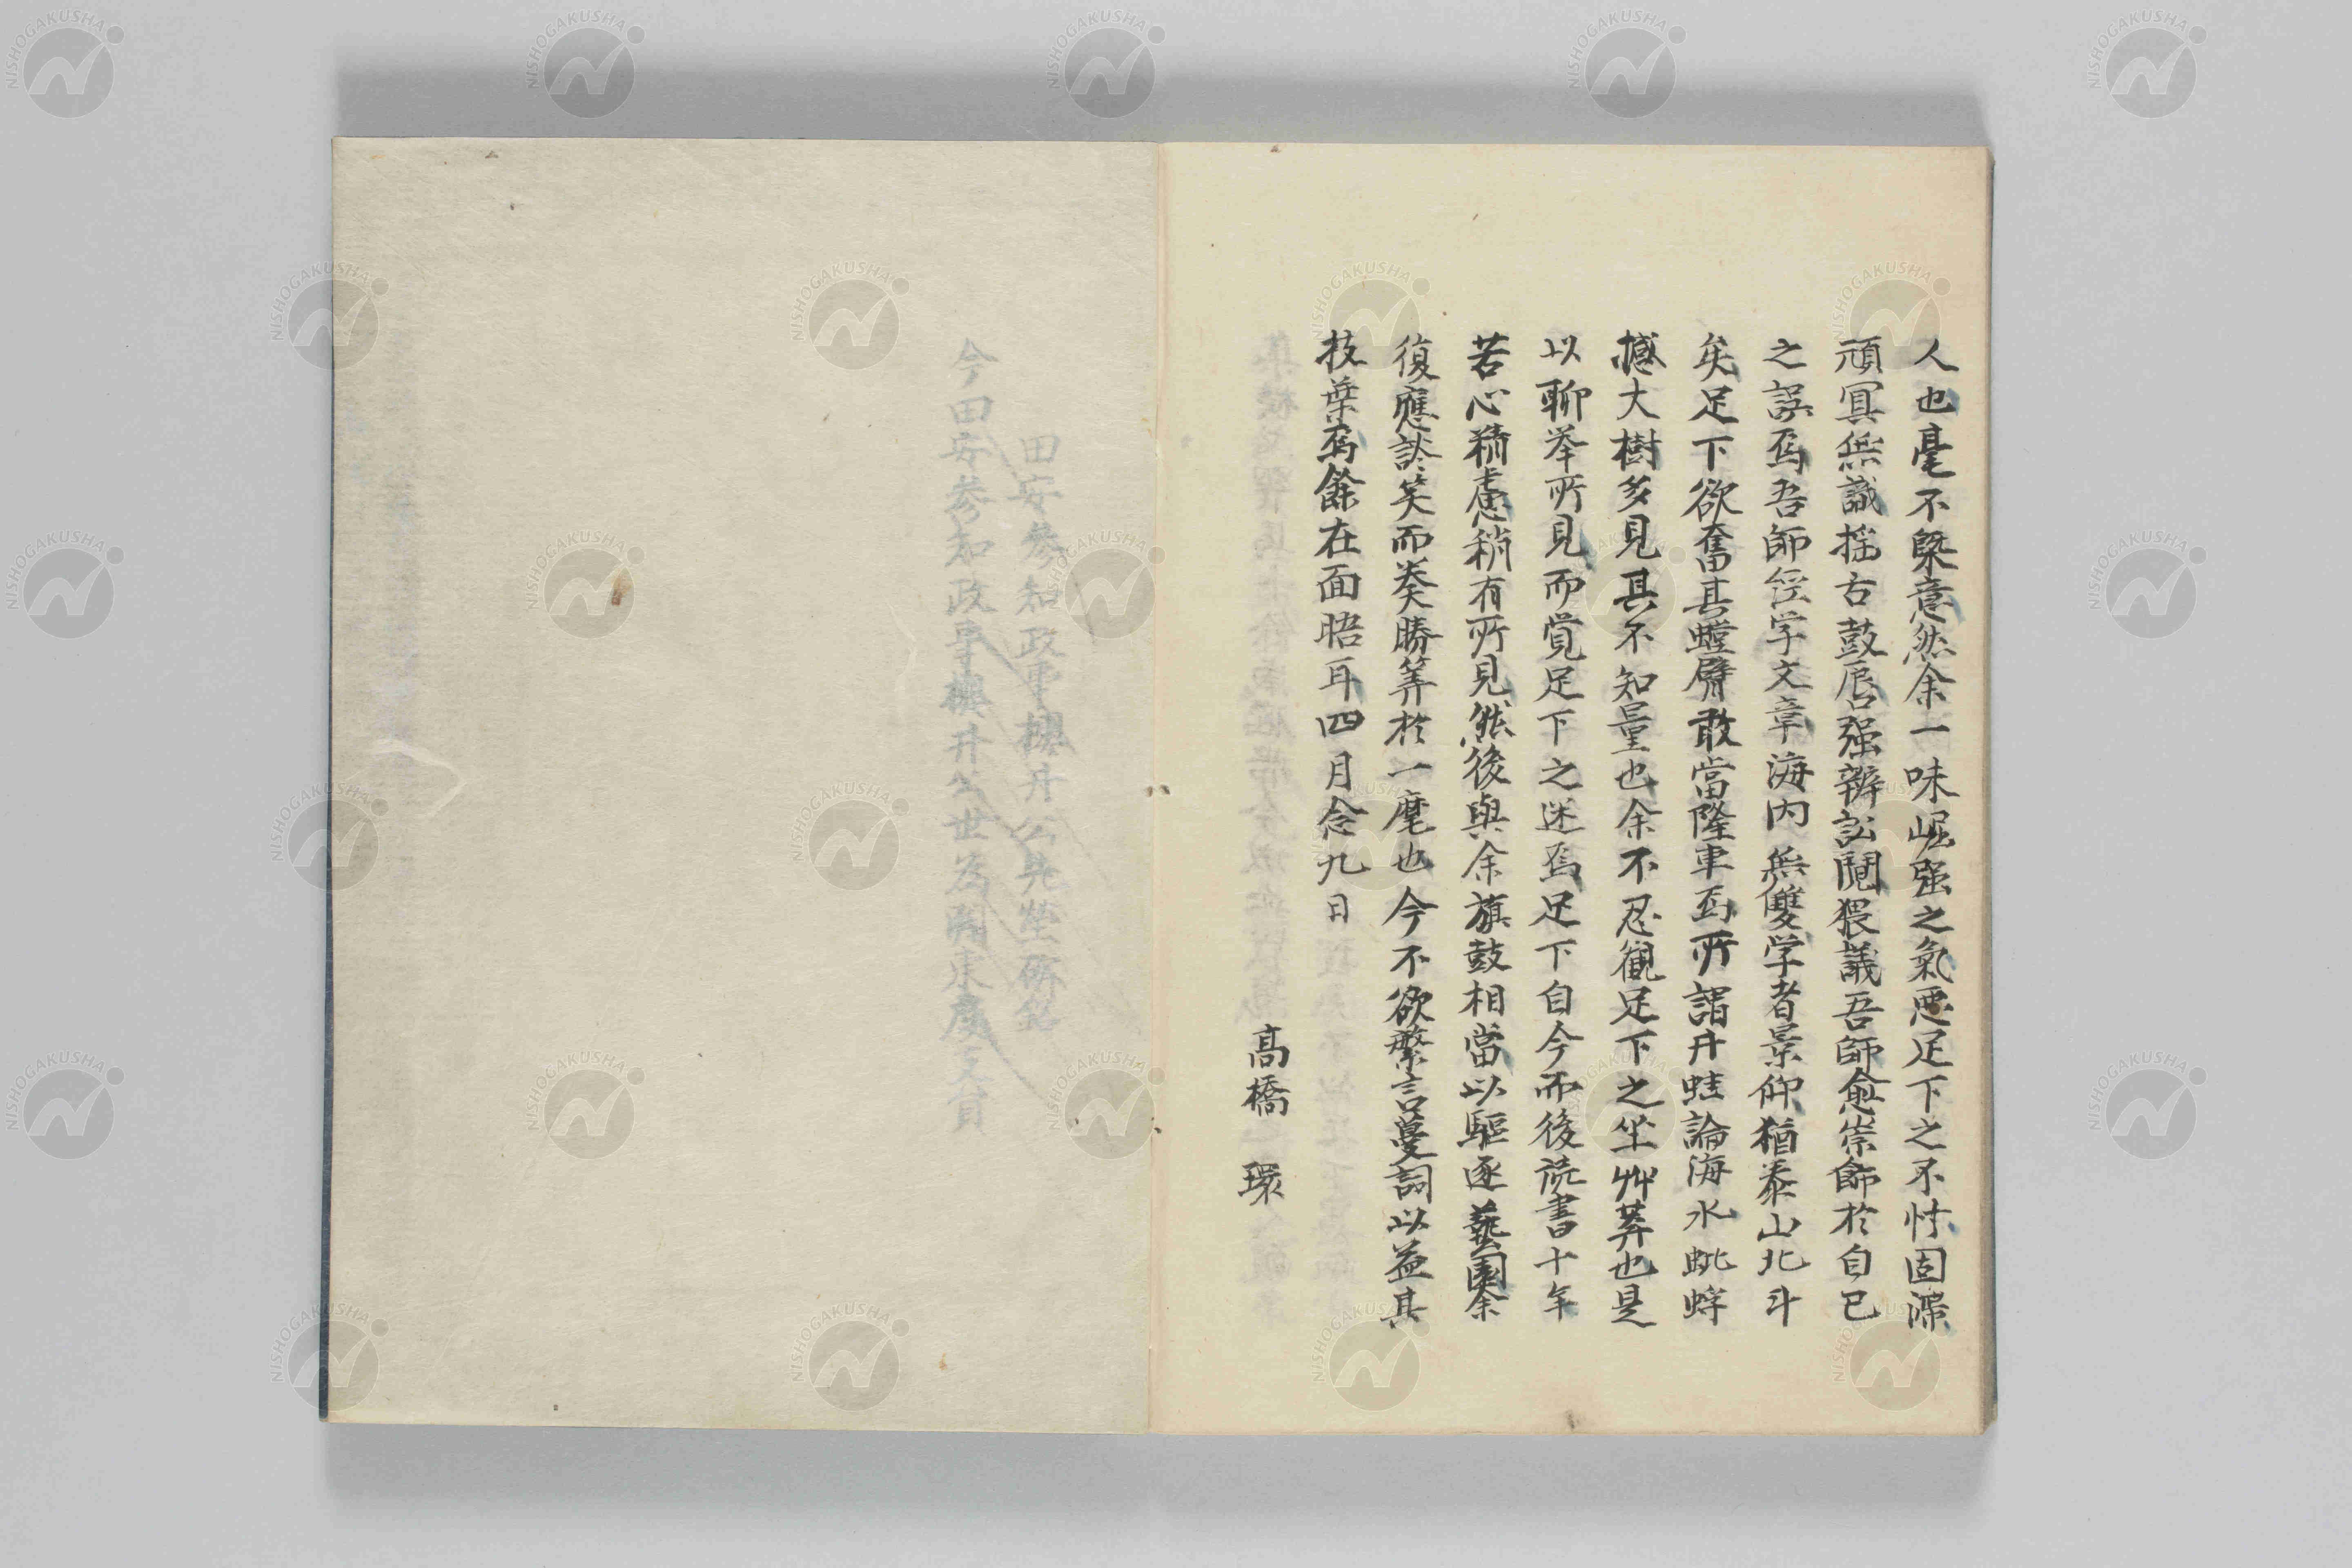 人也毫不槩意然余一味崛强之氣悪足下之不忖固深
頑冥無識揺古鼓唇强辨訟鬩猥議吾師愈崇餙於自己
之誤焉吾師経学文章海内無雙学者景仰猶泰山北斗
矣足下欲奮其螳臂敢當隆車焉所謂井蛙論海水蚍蜉
撼大樹多見其不知量也余不忍観足下之坐艸莽也是
以聊举所見而覚足下之迷焉足下自今而後読書十年
若心精慮稍有所見然後與余旗鼓相當以駆逐藝園余
復應談笑而奏勝筭於一麾也今不欲繁言蔓詞以益其
技葉焉餘在面晤耳四月念九日
高橋 環
田安参知政事櫻井公先塋碑銘
今田安参知政事櫻井公世為関東
NISHOGAKUSHA